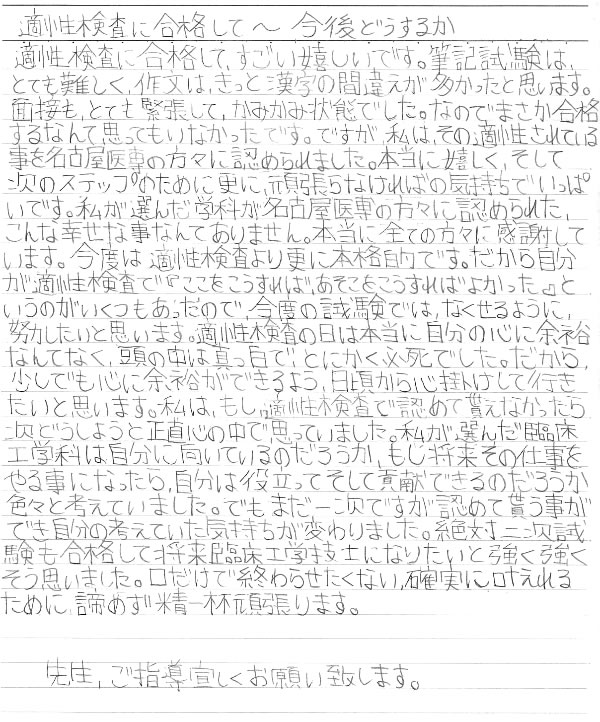 適性検査に合格して～今後どうするか
適性検査に合格して、すごい嬉しいです。筆記試験は、
とても難しく、作文は、きっと漢字の間違えが多かったと思います。
面接も、とても緊張して、かみかみ状態でした。なのでまさか合格
するなんて思ってもいなかったです。ですが、私は、その適性されている
事を名古屋医専の方々に認められました。本当に嬉しく、そして
次のステップのために更に、頑張らなければの気持ちでいっぱ
いです。私が選んだ学科が名古屋医専の方々に認められた、
こんな幸せな事なんてありません。本当に全ての方々に感謝して
います。今度は適性検査より更に本格的です。だから自分
が適性検査で『ここをこうすれば、あそこをこうすればよかった。』と
いうのがいくつもあったので、今度の試験では、なくせるように、
努力したいと思います。適性検査の日は本当に自分の心に余裕
なんてなく、頭の中は真っ白で、とにかく必死でした。だから、
少しでも心に余裕ができるよう、日頃から心掛けして行き
たいと思います。私は、もし、適性検査で認めて貰えなかったら
次どうしようと正直心の中で思っていました。私が選んだ臨床
工学科は自分に向いているのだろうか、もし将来その仕事を
やる事になったら、自分は役立ってそして貢献できるのだろうか
色々と考えていました。でもまだ一次ですが認めて貰う事が
でき自分の考えていた気持ちが変わりました。絶対二次試
験も合格して将来臨床工学技士になりたいと強く強く
そう思いました。口だけで終わらせたくない、確実に叶えれる
ために、諦めず精一杯頑張ります。
先生、ご指導宜しくお願い致します。